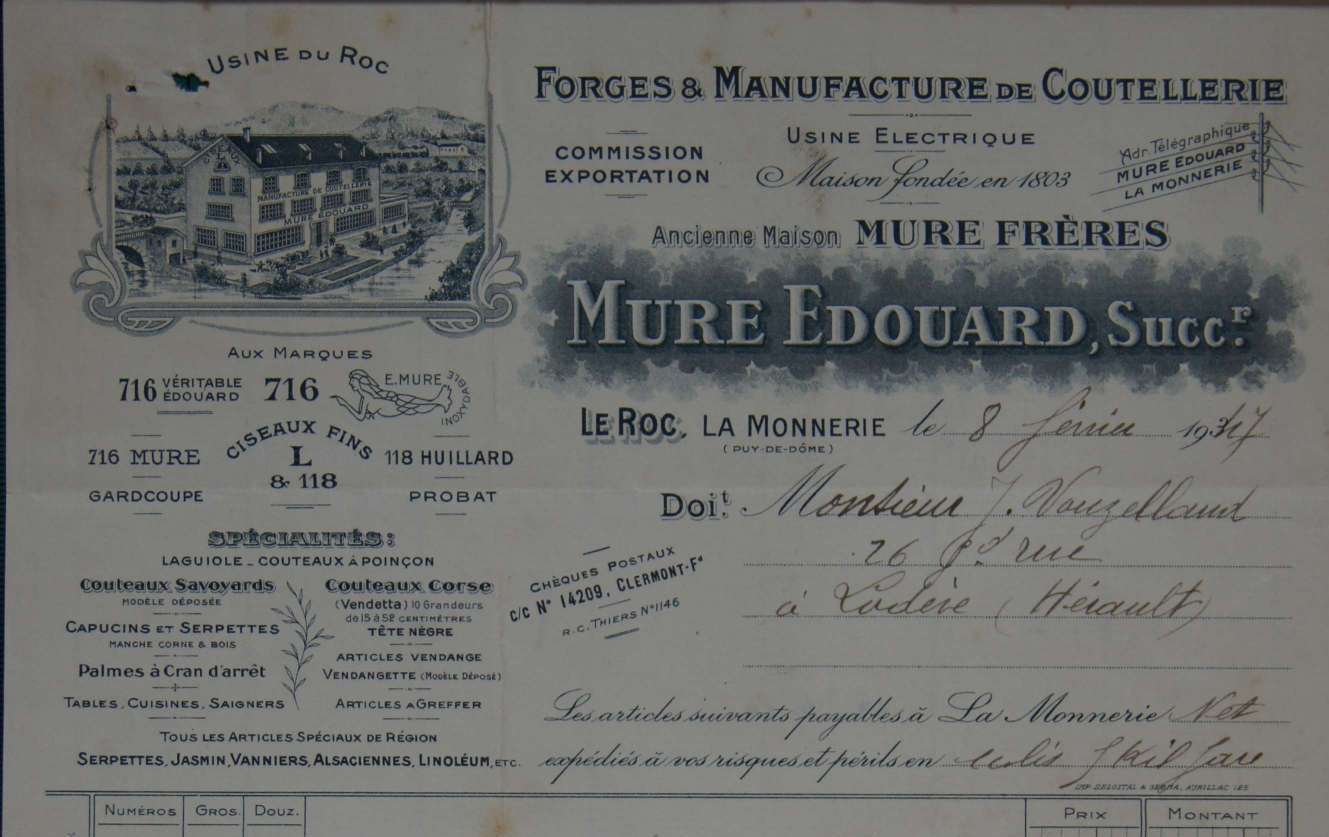 USINE DU ROC
L
MANUFACTURE DE COUTELLERIE
MURE EDOUARD
FORGES & MANUFACTURE DE COUTELLERIE
COMMISSION
EXPORTATION
USINE ELECTRIQUE
Maison fondée en 1803
Adr. Télégraphique
MURE EDOUARD
LA MONNERIE
Ancienne Maison MURE FRÈRES
MURE EDOUARD, Succr.
AUX MARQUES
716 VÉRITABLE ÉDOUARD
716
E. MURE
INOXYDABLE
716 MURE
CISEAUX FINS
L
& 118
118 HUILLARD
GARDCOUPE
PROBAT
SPÉCIALITÉS:
LAGUIOLE _ COUTEAUX À POINÇON
Couteaux Savoyards
MODÈLE DÉPOSÉE
CAPUCINS ET SERPETTES
MANCHE CORNE & BOIS
Palmes à Cran d'arrêt
TABLES, CUISINES, SAIGNERS
Couteaux Corse
(Vendetta) 10 Grandeurs
de 15 à 52 CENTIMÈTRES
TÊTE NÈGRE
ARTICLES VENDANGE
VENDANGETTE (MODÈLE DÉPOSÉ)
ARTICLES A GREFFER
TOUS LES ARTICLES SPÉCIAUX DE RÉGION
SERPETTES, JASMIN, VANNIERS, ALSACIENNES, LINOLÉUM, ETC.
LE ROC, LA MONNERIE le 8 février 1937
(PUY-DE-DÔME)
Doit. Monsieur J. Vouzelland
26 Gd rue
à Lodève (Hérault)
CHÈQUES POSTAUX
C/C N° 14209, CLERMONT-Fd
R.C. THIERS N° 1146
Les articles suivants payables à La Monnerie Net
expédiés à vos risques et périls en colis gare
NUMÉROS GROS. DOUZ. PRIX MONTANT